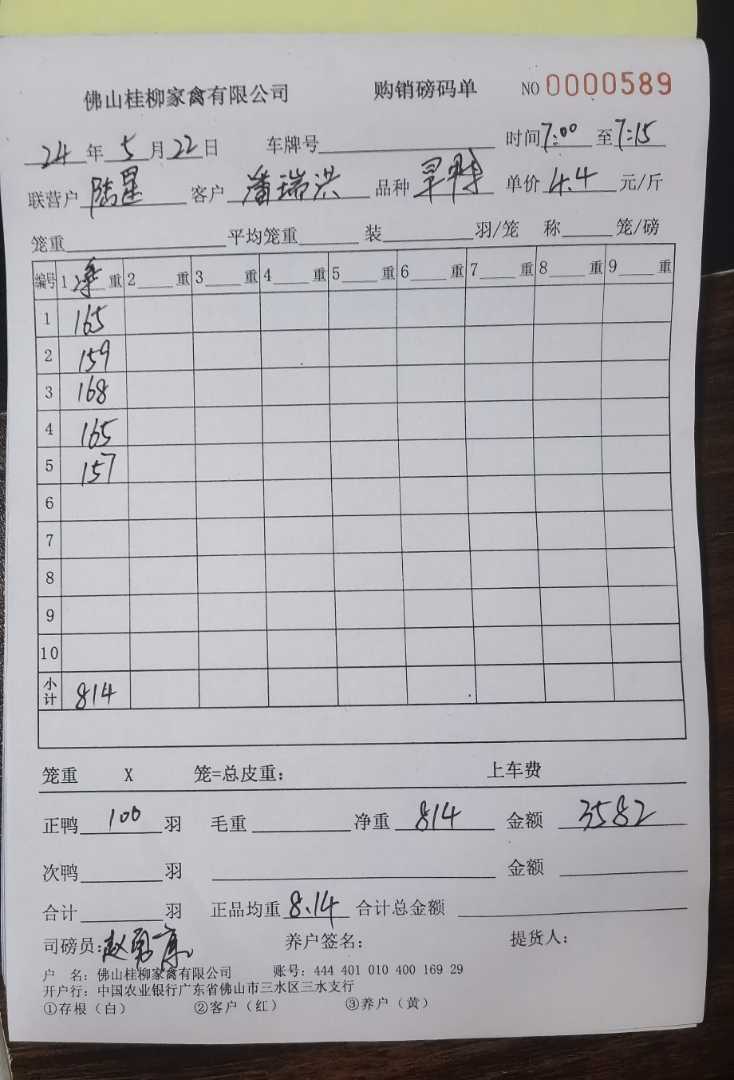 佛山桂柳家禽有限公司 购销磅码单 NO 0000589
24年5月22日 车牌号 时间7:00至7:15
联营户 陆星 客户 潘瑞洪 品种 单价4.4元/斤
笼重 平均笼重 装 羽/笼 称 笼/磅
编号 1净重 2 重 3 重 4 重 5 重 6 重 7 重 8 重 9 重
1 165
2 159
3 168
4 165
5 157
6
7
8
9
10
小计 814
笼重 X 笼=总皮重: 上车费
正鸭100羽 毛重 净重 814 金额 3582
次鸭 羽 金额
合计 羽 正品均重8.14 合计总金额
司磅员: 养户签名: 提货人:
户 名: 佛山桂柳家禽有限公司 账号: 444 401 010 400 169 29
开户行: 中国农业银行广东省佛山市三水区三水支行
①存根（白） ②客户（红） ③养户（黄）